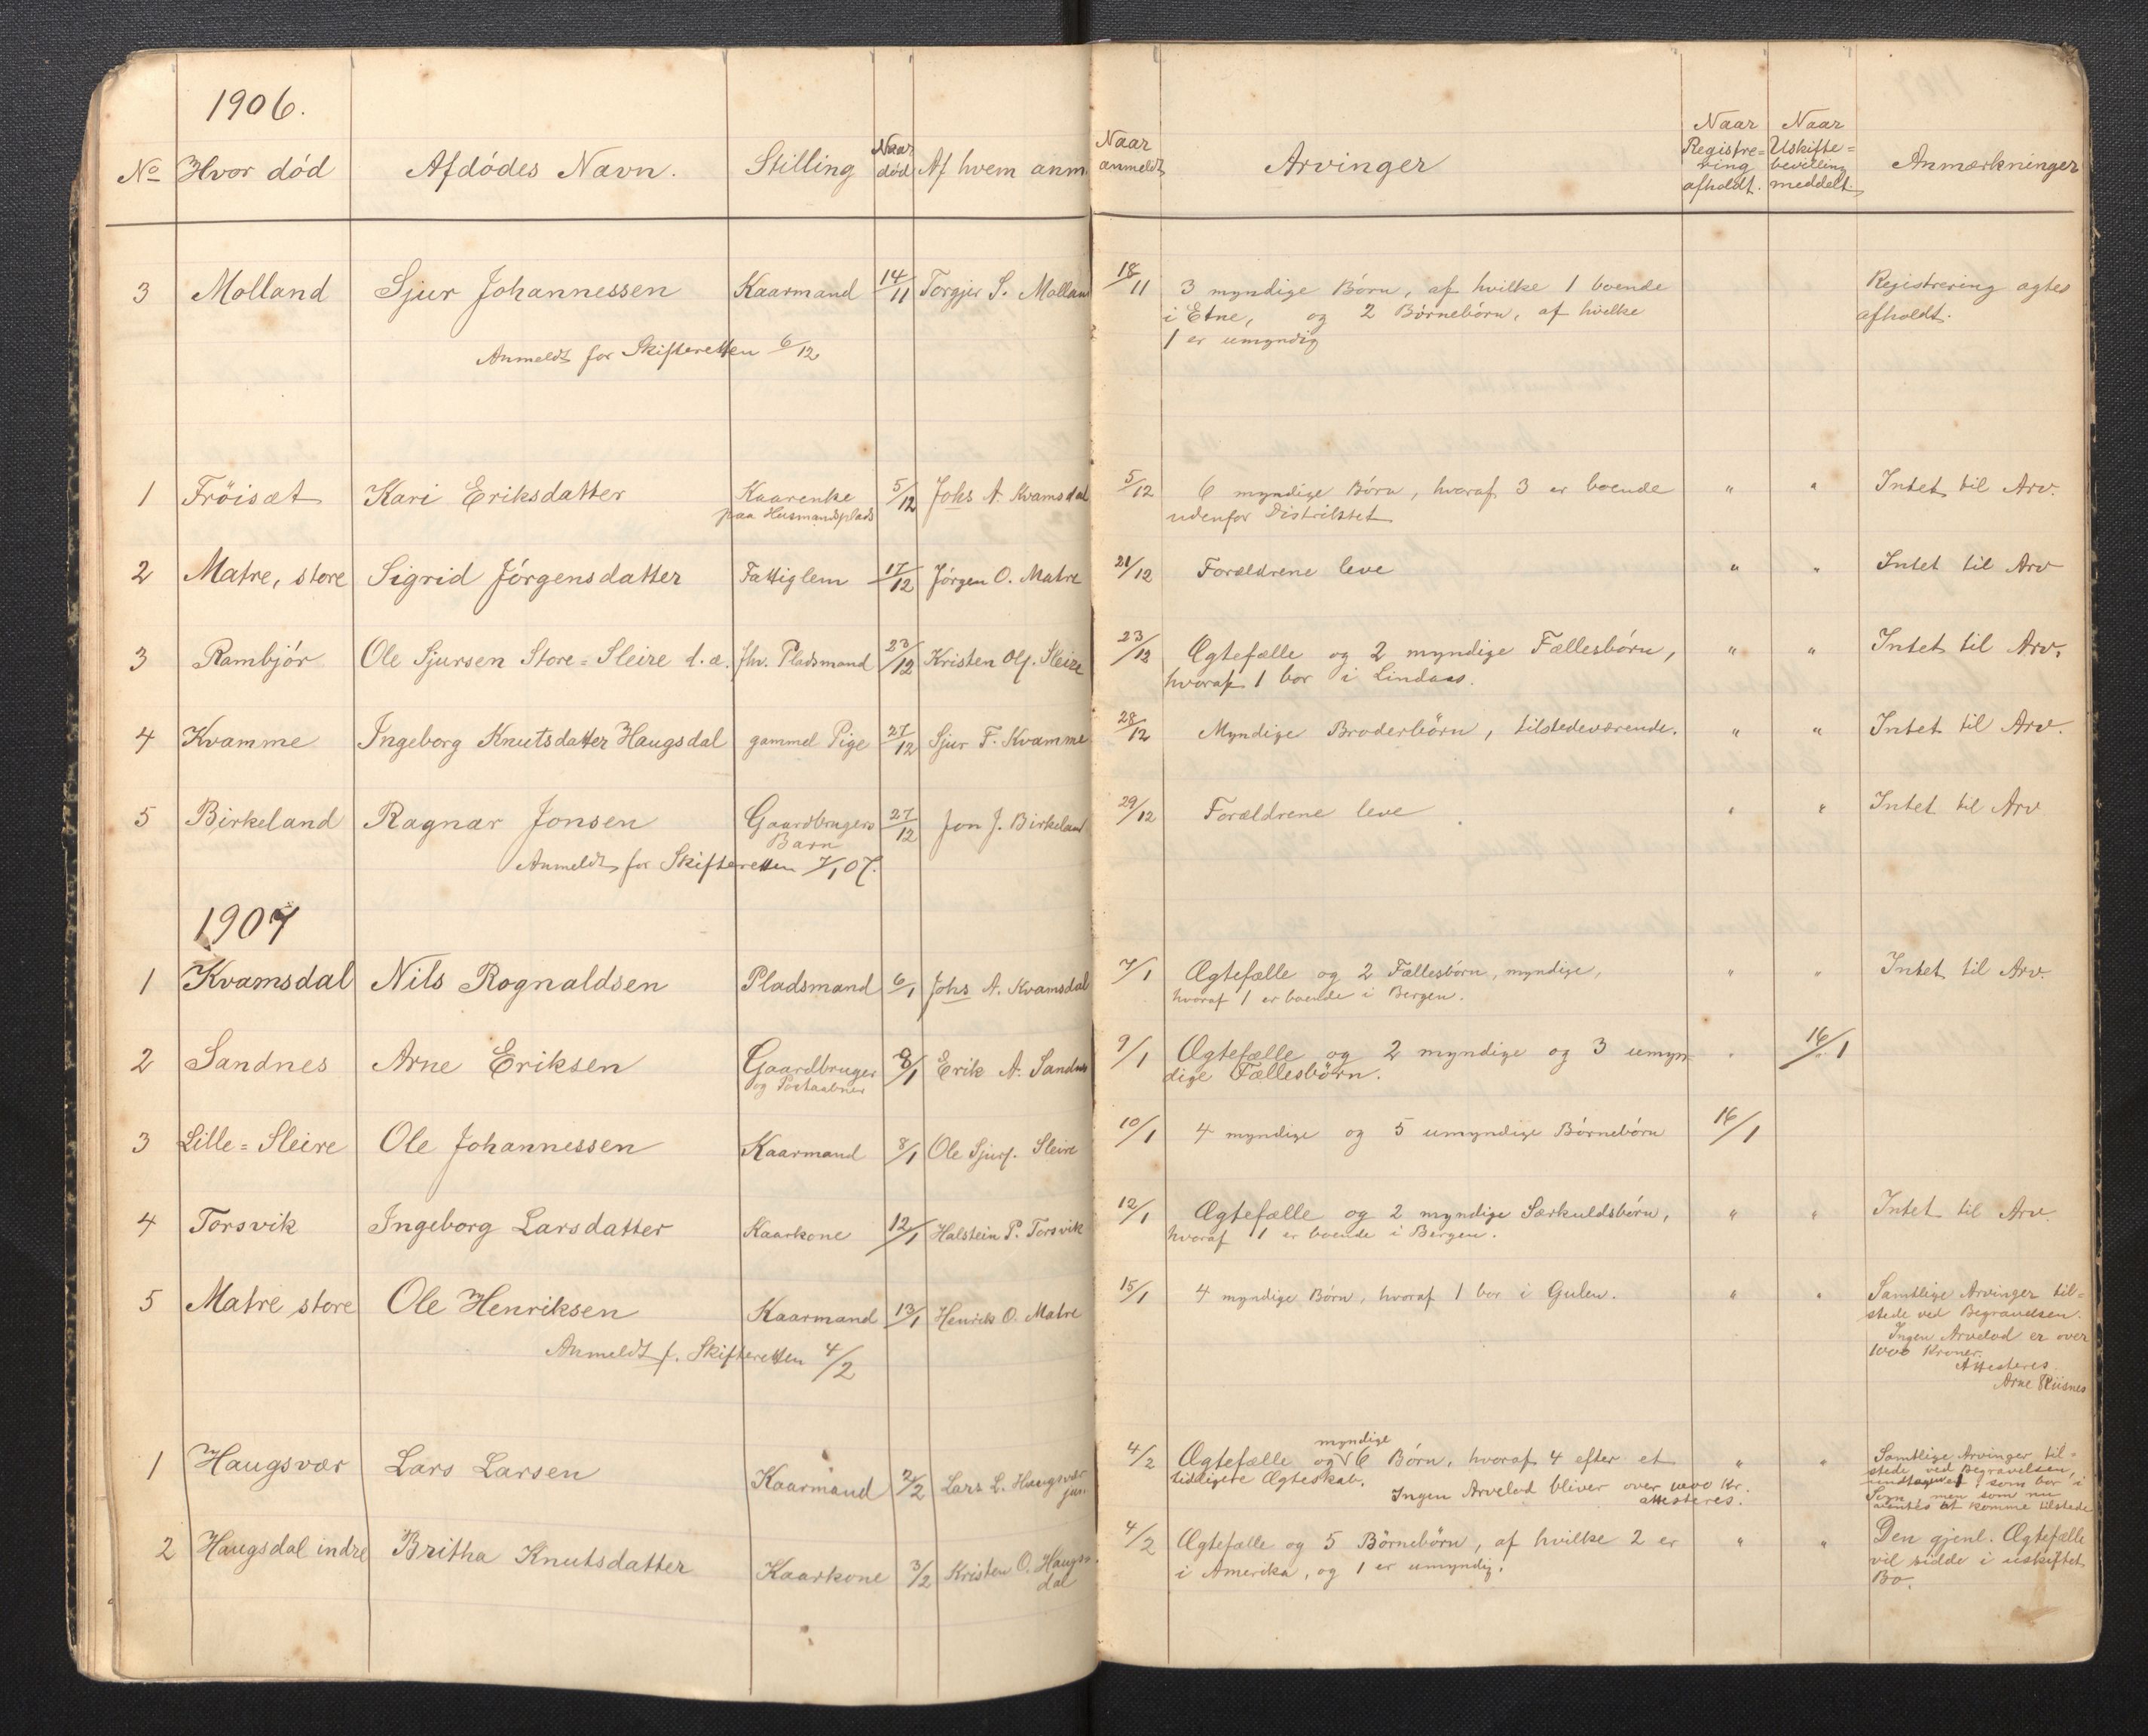 1906.
No Hvor död Afdödes Navn. Stilling Naar död Af hvem anm. Naar anmeldt Arvinger Naar Registrering afholdt. Naar Uskiftebevilling meddelt. Anmærkninger
3 Molland Sjur Johannessen Kaarmand 14/11 Torgjer S. Molland 18/11 3 myndige Börn, af hvilke 1 boende Registrering agtes
i Etne, og 2 Börnebörn, af hvilke afholdt.
1 er umyndig
Anmeldt for Skifteretten 6/12
1 Fröisæt Kari Eriksdatter Kaarenke 5/12 Johs A. Kvamsdal 5/12 6 myndige Börn, hvoraf 3 er boende " " Intet til Arv.
paa Husmandsplads udenfor Distriktet
2 Matre, store Sigrid Jörgensdatter Fattiglem 17/12 Jörgen O. Matre 21/12 Forældrene leve " " Intet til Arv
3 Rambjör Ole Sjursen Store=Sleire d.æ. fhv. Pladsmand 23/12 Kristen Ols. Sleire 23/12 Ægtefælle og 2 myndige Fællesbörn, " " Intet til Arv.
hvoraf 1 bor i Lindaas.
4 Kvamme Ingeborg Knutsdatter Haugsdal gammel Pige 27/12 Sjur F. Kvamme 28/12 Myndige Broderbörn, tilstedeværende. " " Intet til Arv.
5 Birkeland Ragnar Jonsen Gaardbrugers 27/12 Jon J. Birkeland 29/12 Forældrene leve " " Intet til Arv
Barn
Anmeldt for Skifteretten 7/1 07.
1907
1 Kvamsdal Nils Rognaldsen Pladsmand 6/1 Johs A. Kvamsdal 7/1 Ægtefælle og 2 Fællesbörn, myndige, " " Intet til Arv.
hvoraf 1 er boende i Bergen.
2 Sandnes Arne Eriksen Gaardbruger 8/1 Erik A. Sandnes 9/1 Ægtefælle og 2 myndige og 3 umyn- " 16/1
og Postaabner dige Fællesbörn.
3 Lille=Sleire Ole Johannessen Kaarmand 8/1 Ole Sjurs. Sleire 10/1 4 myndige og 5 umyndige Börnebörn 16/1
4 Torsvik Ingeborg Larsdatter Kaarkone 12/1 Halstein P. Torsvik 12/1 Ægtefælle og 2 myndige Særkuldsbörn, " " Intet til Arv.
hvoraf 1 er boende i Bergen.
5 Matre store Ole Henriksen Kaarmand 13/1 Henrik O. Matre 15/1 4 myndige Börn, hvoraf 1 bor i Gulen. " " Samtlige Arvinger til=
stede ved Begravelsen.
Ingen Arvelod er over
1000 Kroner.
Attesteres.
Arne Riisnes
Anmeldt f. Skifteretten 4/2
1 Haugsvær Lars Larsen Kaarmand 2/2 Lars L. Haugsvær jun. 4/2 Ægtefælle og myndige 6 Börn, hvoraf 4 efter et " " Samtlige Arvinger til=
tidligere Ægteskab. stede ved Begravelsen,
Ingen Arvelod bliver over 1000 Kr. undtagen 1, som bor i
attesteres. Sogn, men som nu
ventes at komme tilstede
2 Haugsdal indre Britha Knutsdatter Kaarkone 3/2 Kristen O. Haugsdal 4/2 Ægtefælle og 5 Börnebörn, af hvilke 2 er " " Den gjenl. Ægtefælle
i Amerika, og 1 er umyndig. vil sidde i uskiftet
Bo.